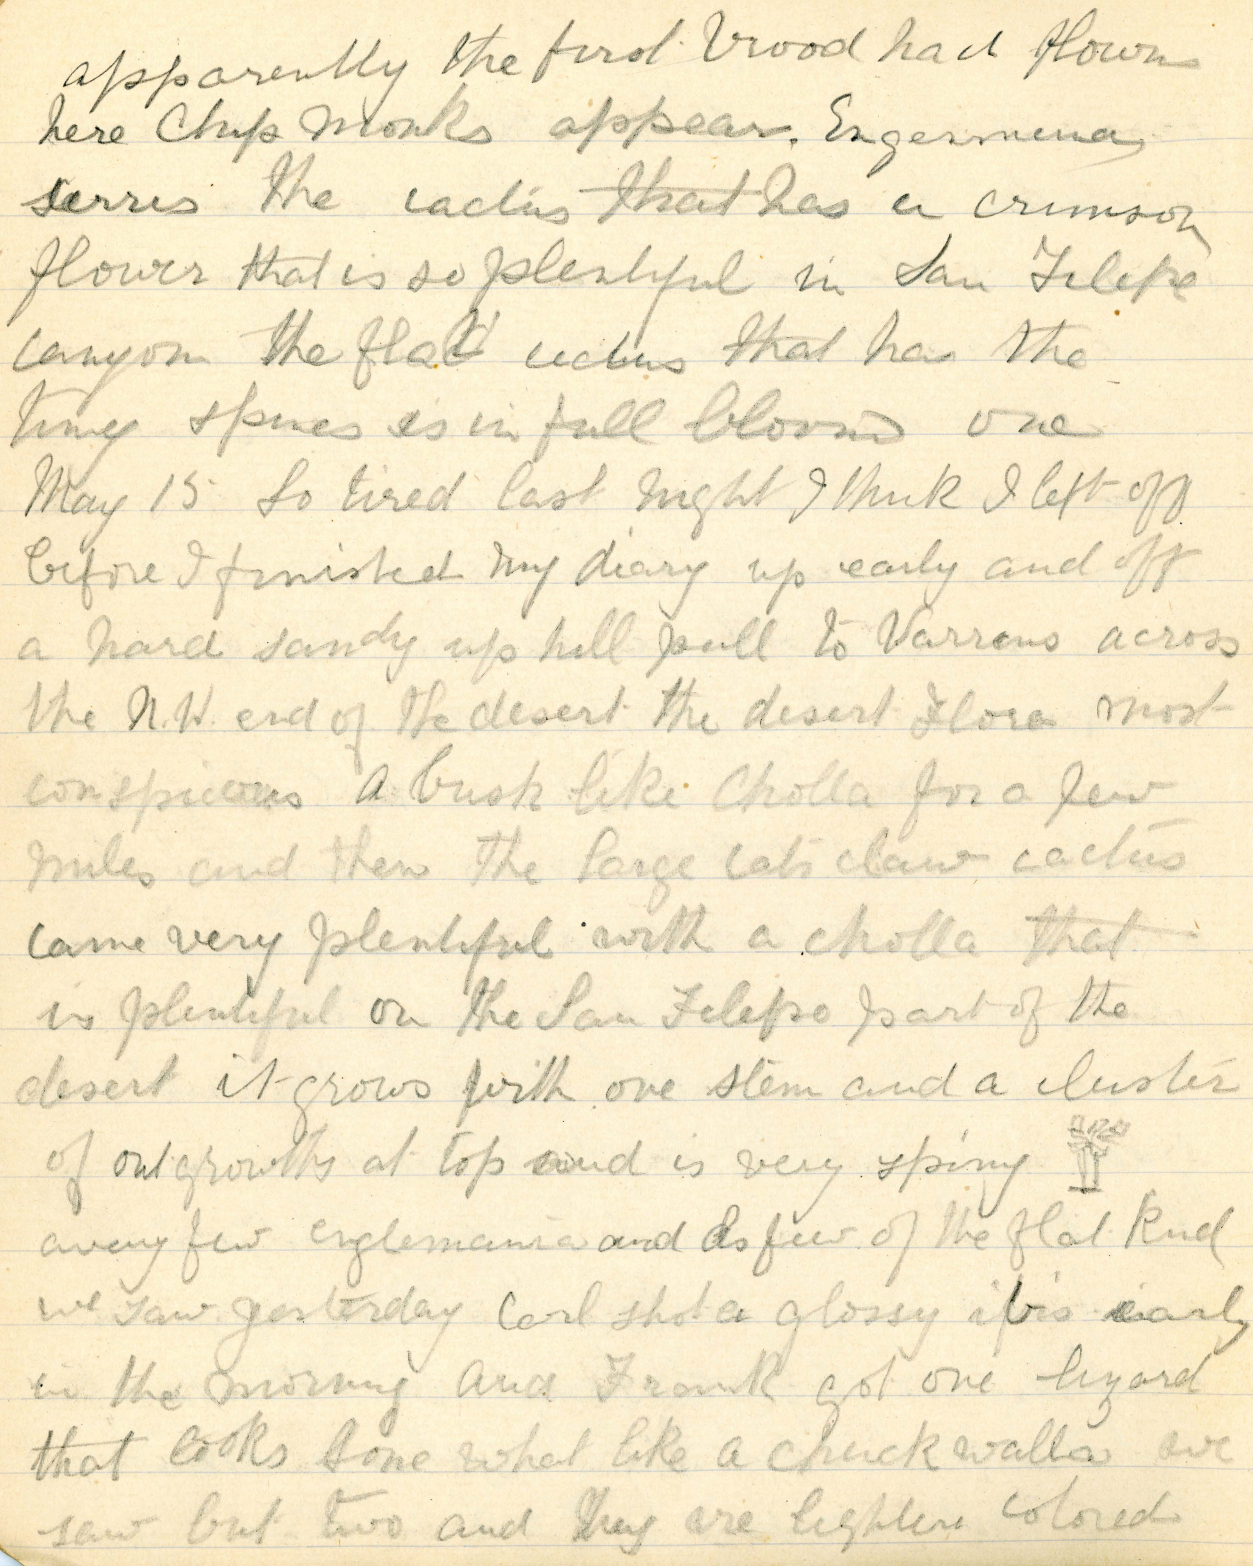 apparently the first brood had flown
here Chip monks appear.
the cactus that has a crimson
flower that is so plentiful in San Felepe
canyon the flat cactus that has the
tiny spines is in full bloom one
May 15 So tired last night I think I left off
before I finished my diary up early and off
a hard sandy up hill pull to Warrens across
the N.W. end of the desert the desert Flora most
conspicous A bush like Cholla for a few
miles and then the large cats claw cactus
came very plentiful with a cholla that
is plentiful on the San Felepe part of the
desert it grows with one stem and a cluster
of outgrowths at top and is very spiny
a very few englemania and a few of the flat kind
we saw yesterday Carl shot a glossy ibis early
in the morning and Frank got one lizard
that looks some what like a chuck walla we
saw but two and they are lighter colored